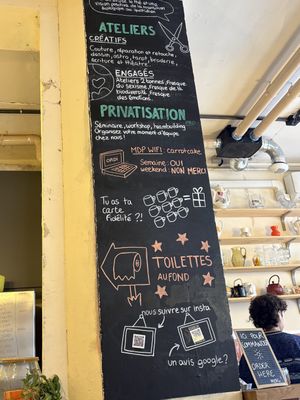 vision positive du thé et une
biologique au quotidien
ATELIERS
CRÉATIFS
Couture, réparation et retouche,
dessin, astro, tarot, broderie,
écriture et théâtre!
ENGAGÉS
Ateliers 2 tonnes, Fresque
du sexisme, Fresque de la
biodiversité, Fresque
des Émotions.
PRIVATISATION
Séminaire, workshop, teambuilding
Organisez votre moment d'équipe
chez nous!
ORDI
MDP WIFI: carrotcake
Semaine: OUI
weekend: NON MERCI
Tu as ta
carte
fidélité ?!
TOILETTES
AU FOND
nous suivre sur insta
un avis google?
ICI POUR
COMMANDER
ORDER
HERE
MERCI